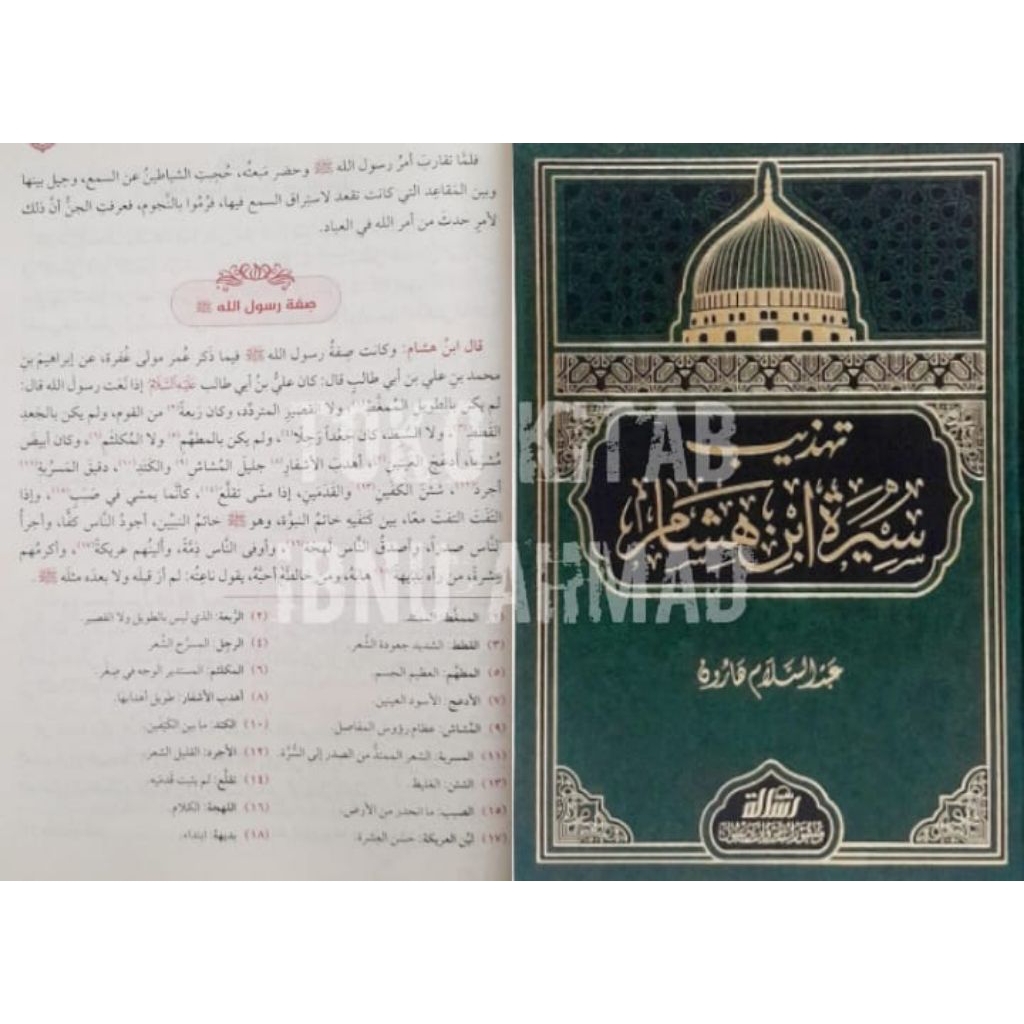 فلمَّا تقاربَ أمرُ رسول الله ﷺ وحضر مَبعثُه، حُجبت الشياطينُ عن السمع، وحيل بينها
وبين المَقاعِد التي كانت تقعد لاستِراق السمع فيها، فرُمُوا بالنُّجوم، فعرفت الجنُّ أنَّ ذلك
لأمرٍ حدثَ من أمر الله في العباد.
صِفة رسول الله ﷺ
قال ابنُ هشام: وكانت صِفةُ رسول الله ﷺ فيما ذكر عُمر مولى غُفرة، عن إبراهيمَ بنِ
محمد بن علي بن أبي طالب قال: كان عليُّ بنُ أبي طالب عَلَيْهِ السَّلَامُ إذا نَعَت رسولَ الله قال:
لم يكن بالطويل المُمَّغِط(١)، ولا القصير المتردِّد، وكان رَبعةً(٢) من القوم، ولم يكن بالجَعد
القَطَط(٣) ولا السَّبط، كان جَعْداً رَجِلًا(٤)، ولم يكن بالمطهَّم(٥) ولا المُكلثَم(٦)، وكان أبيضَ
مُشرَباً، أدعَجَ العينين(٧)، أهدبَ الأشفار(٨)، جليلَ المُشاش(٩) والكَتَد(١٠)، دقيق المَسرُبة(١١)
أجردَ(١٢)، شَثْنَ الكفَّين(١٣) والقدَمَين، إذا مشَى تقلَّع(١٤)، كأنَّما يمشي في صَبَب(١٥)، وإذا
التَفَتَ التفت معًا، بين كتفَيه خاتم النبوَّة، وهو ﷺ خاتمُ النبيِّين، أجودُ النَّاس كفًّا، وأجرأُ
الناس صدراً، وأصدقُ الناس لهجةً(١٦)، وأوفى النَّاس ذِمَّةً، وألينُهم عريكةً(١٧)، وأكرمُهم
عِشرةً، من رآه بديهةً(١٨) هابَهُ، ومن خالطَهُ أحبَّه، يقول ناعتُه: لم أرَ قبلَه ولا بعدَه مثلَه ﷺ.
(١) الممغَّط: الممتد. (٢) الرَّبعة: الذي ليس بالطويل ولا القصير.
(٣) القطط: الشديد جعودة الشَّعر. (٤) الرجِل: المسرَّح الشَّعر.
(٥) المطهَّم: العظيم الجسم. (٦) المكلثم: المستدير الوجه في صِغَر.
(٧) الأدعج: الأسود العينين. (٨) أهدب الأشفار: طويل أهدابها.
(٩) المُشاش: عظام رؤوس المفاصل. (١٠) الكتد: ما بين الكتِفَين.
(١١) المسربة: الشعر الممتدُّ من الصدر إلى السُّرَّة. (١٢) الأجرد: القليل الشعر.
(١٣) الشثن: الغليظ. (١٤) تقلَّع: لم يثبت قدميه.
(١٥) الصبب: ما انحدر من الأرض. (١٦) اللهجة: الكلام.
(١٧) ليِّن العريكة: حسَن العشرة. (١٨) بديهة: ابتداء.
تهذيب
سيرة ابن هشام
عبد السلام هارون
TOKO KITAB
IBNU AHMAD